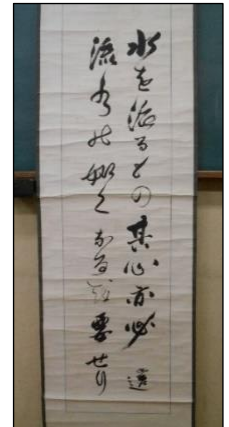 水を治るもの其心亦必
流水の如くなるを要せり